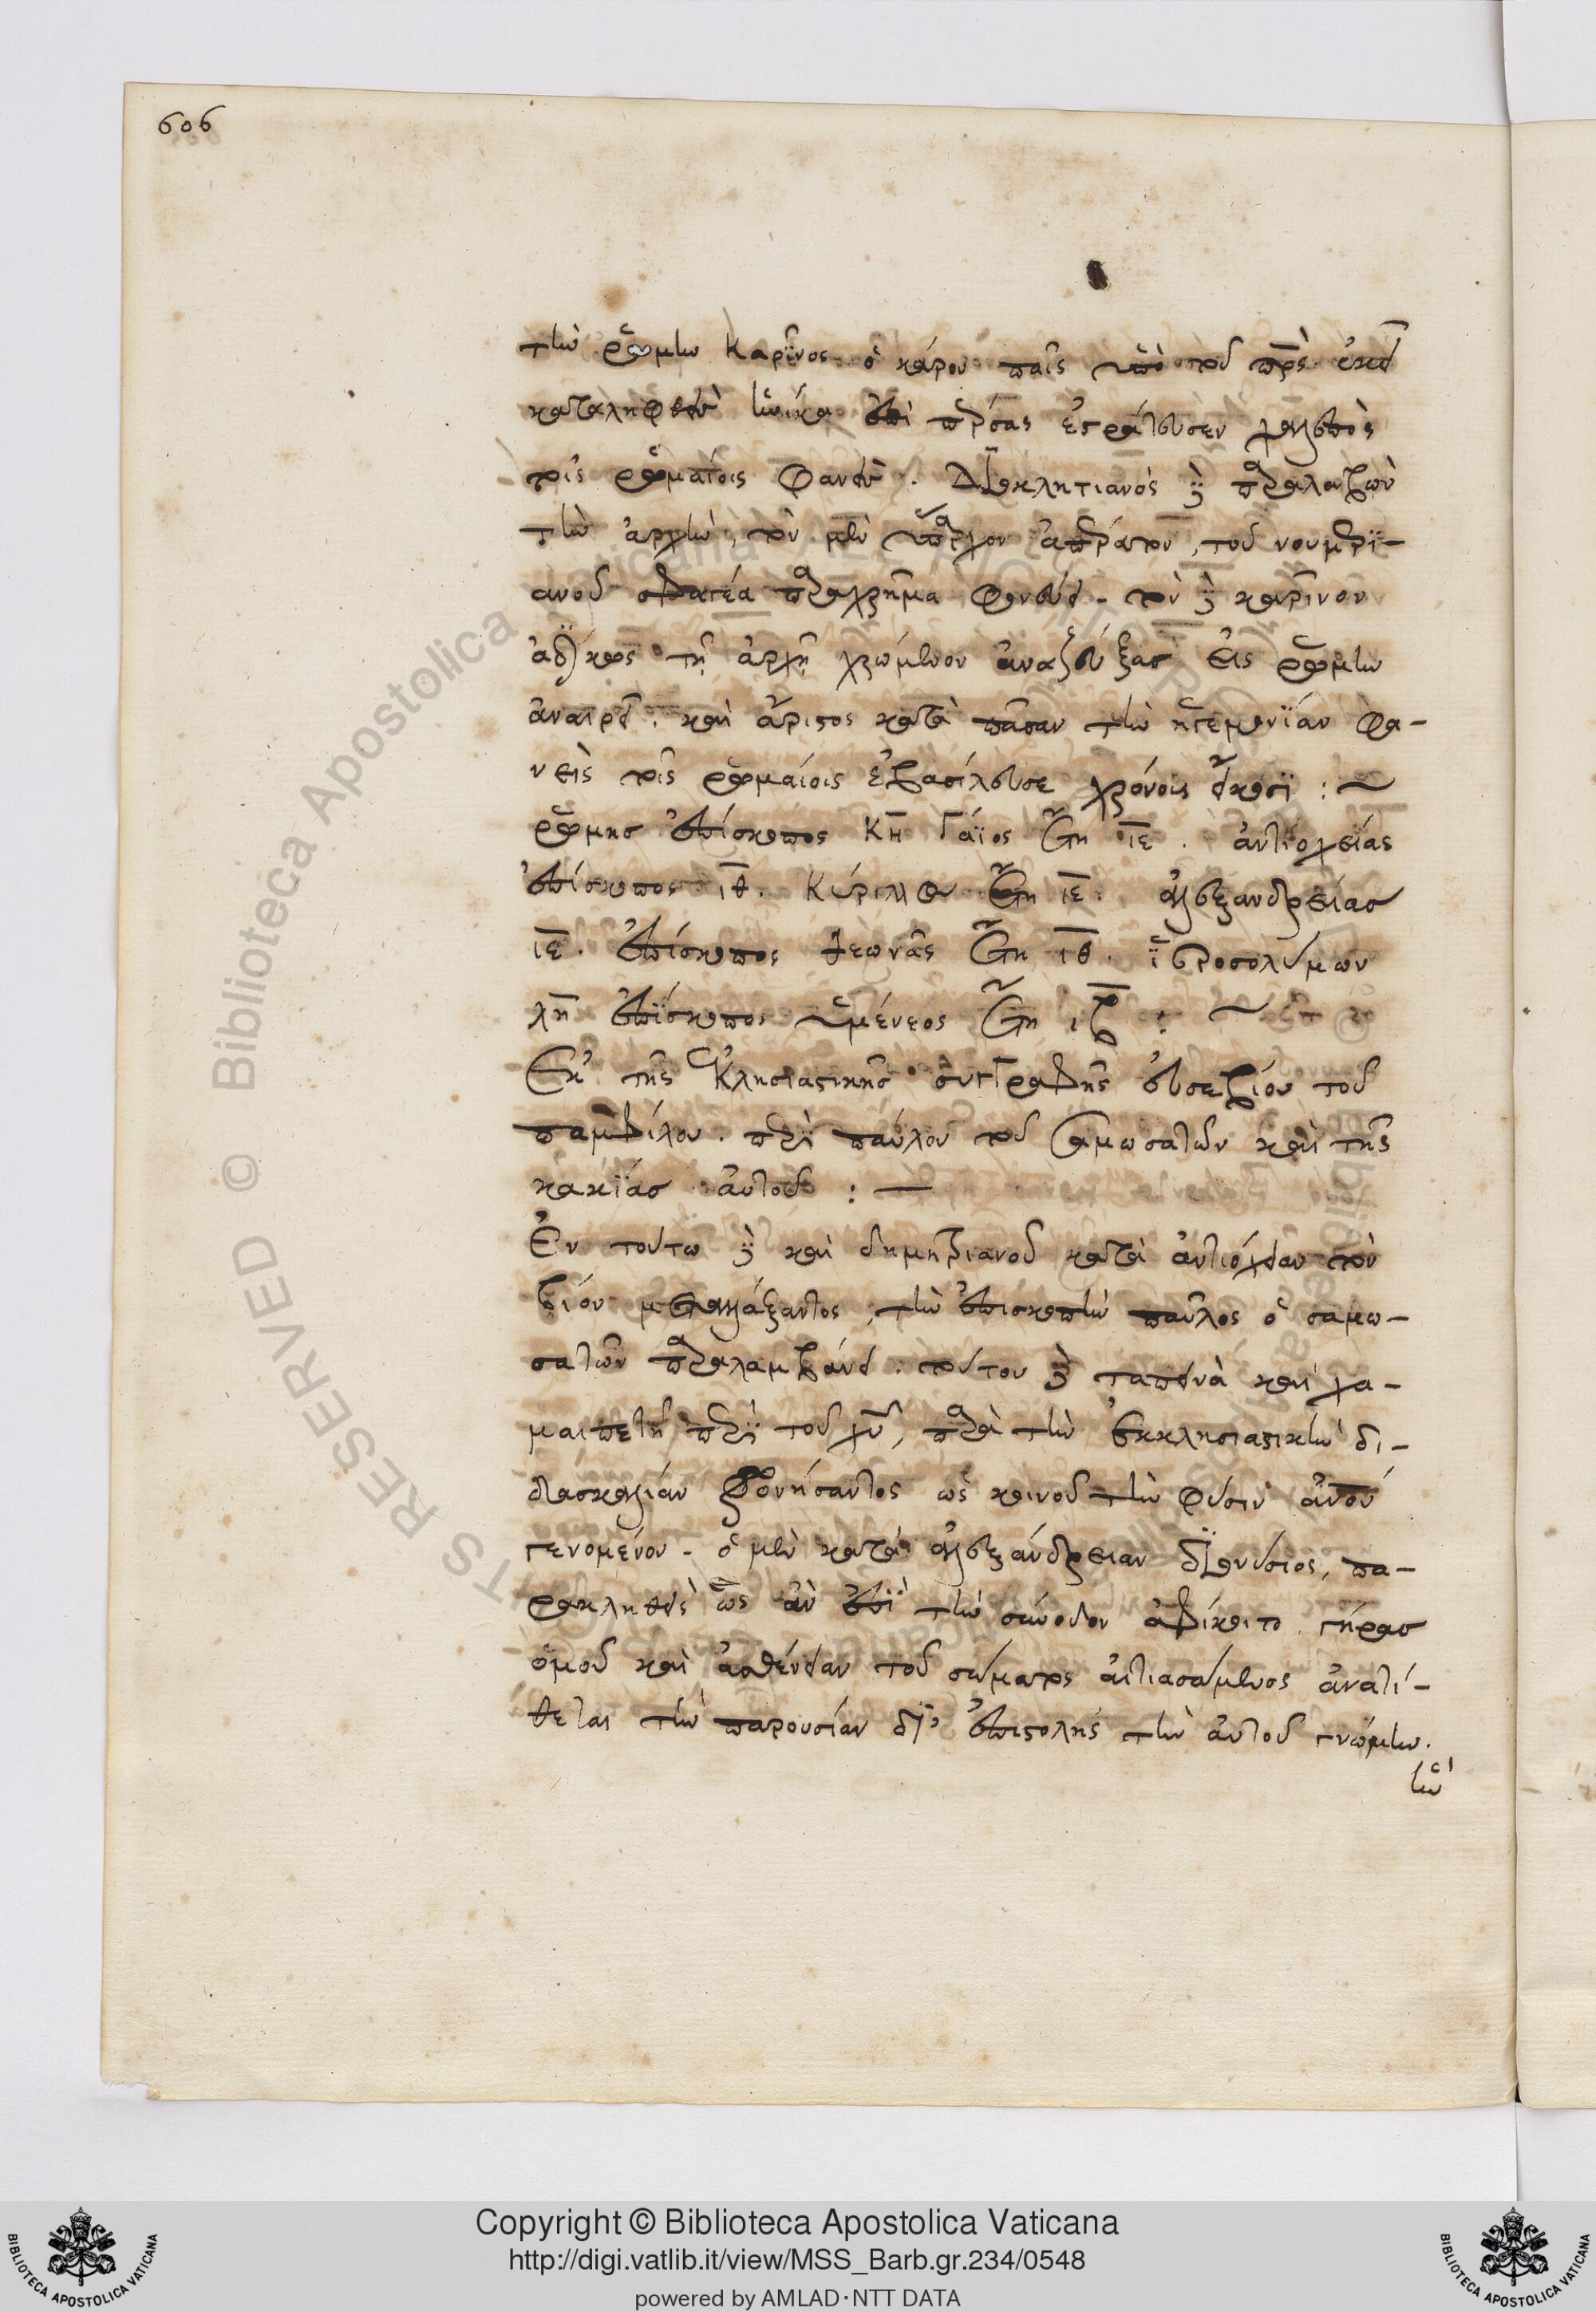 606
τὴν ῥώμην Καρῖνος ὁ κάρου παῖς ὑπὸ τοῦ πρς ἐκεῖ
καταλειφθεὶς ἡνίκα ἐπὶ πέρσας ἐστράτευσεν χαλεπὸς
τοῖς ῥωμαίοις φανεὶς. Διοκλητιανὸς δὲ παραλαβὼν
τὴν ἀρχὴν, τὸν μὲν ὕπαρχον ἄπερα τὸν, τοῦ νουμερϊ-
ανοῦ φονέα παραχρῆμα φονεύει. τὸν δὲ καρῖνον
ἀδίκως τῇ ἀρχῇ χρώμενον ἀναζεύξας εἰς ῥώμην
ἀναιρεῖ. καὶ ἄριστος κατὰ πᾶσαν τὴν ἡγεμονΐαν φα-
νεὶς τοῖς ῥωμαίοις ἐβασίλευσε χρόνοις εἴκοσϊ : ~
ῥώμης ἐπίσκοπος κη Γάϊος ἔτη ιε. ἀντιοχείας
ἐπίσκοπος ιθ. Κύριλλος ἔτη ιε. ἀλεξανδρείας
ιε. ἐπίσκοπος θεωνᾶς ἔτη ιθ. ἱεροσολύμων
λη ἐπΐσκοπος ὑμένεος ἔτη ιβ : ~
Ἐκ τῆς ἐκκλησιαστικῆς συγγραφῆς εὐσεβίου τοῦ
παμφίλου. περὶ παύλου τοῦ σαμωσατέων καὶ τῆς
κακΐας αὐτοῦ : —
Ἐν τούτω δὲ καὶ δημητριανοῦ κατὰ ἀντιόχειαν τὸν
βίον μεταλλάξαντος, τὴν ἐπισκοπὴν παῦλος ὁ σαμω-
σατῶν παραλαμβάνει. τούτου δὲ ταπεινὰ καὶ χα-
μαιπετῆ περὶ τοῦ χυ, παρὰ τὴν ἐκκλησιαστικὴν δι-
δασκαλίαν φρονήσαντος ὡς κοινοῦ τὴν φύσιν ανου
γενομένου. ὁ μὲν κατὰ ἀλεξάνδρειαν διονύσιος, πα-
ρακληθεὶς ὡς ἂν ἐπὶ τὴν σύνοδον ἀφίκοιτο γήρας
ὁμοῦ καὶ ἀσθένειαν τοῦ σώματος αἰτιασάμενος ἀνατί-
θεται τὴν παρουσίαν δϊ' ἐπιστολῆς τὴν αὐτοῦ γνώμην.
ἣν
Copyright © Biblioteca Apostolica Vaticana
http://digi.vatlib.it/view/MSS_Barb.gr.234/0548
powered by AMLAD·NTT DATA